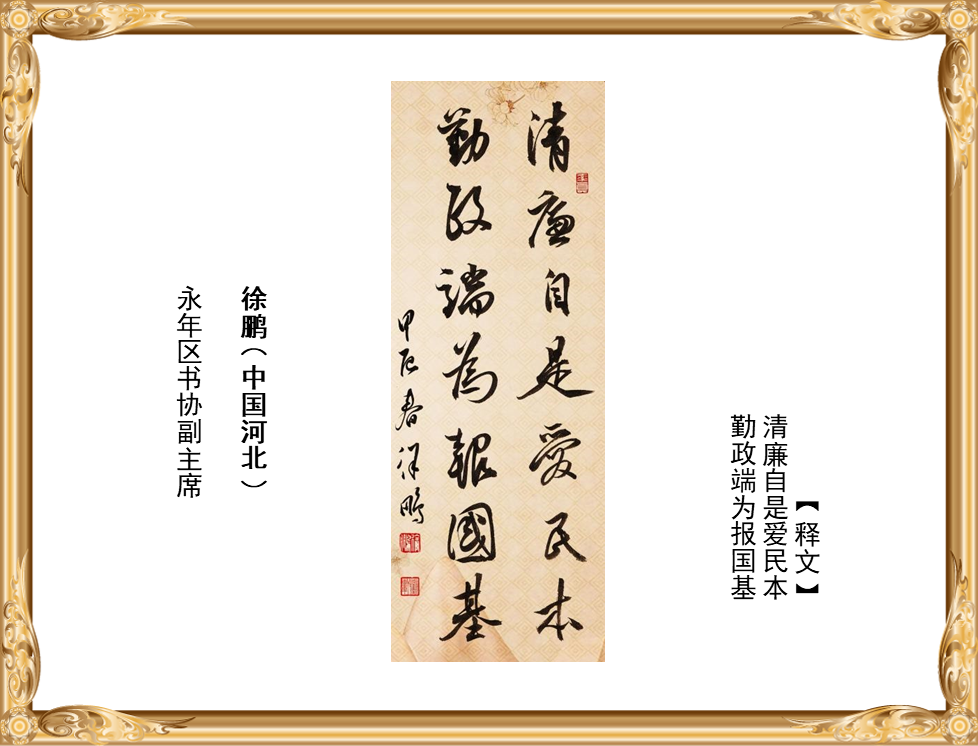 【释文】
清廉自是爱民本
勤政端为报国基
清廉自是愛民本
勤政端為報國基
甲辰春徐鵬
徐鹏（中国河北）
永年区书协副主席